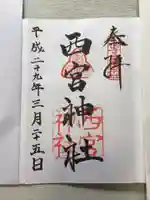 奉拝
西宮神社
平成二十九年三月二十五日